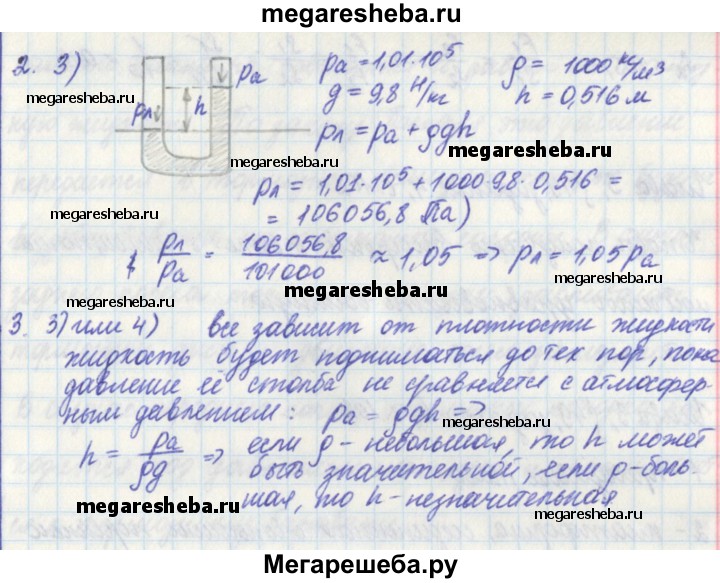 megaresheba.ru
2. 3)
pa
pл
h
pa = 1,01·10⁵
ρ = 1000 кг/м³
g = 9,8 Н/кг
h = 0,516 м
megaresheba.ru
megaresheba.ru
pл = pа + ρgh
megaresheba.ru
megaresheba.ru
pл = 1,01·10⁵ + 1000·9,8·0,516 =
= 106056,8 Па)
pл/pа = 106056,8/101000 ≈ 1,05 => pл = 1,05pа
megaresheba.ru
megaresheba.ru
megaresheba.ru
3. 3) или 4) все зависит от плотности жидкости
жидкость будет подниматься до тех пор, пока
давление её столба не сравняется с атмосфер-
ным давлением: pа = ρgh =>
megaresheba.ru
megaresheba.ru
h = pа/ρg => если ρ - небольшая, то h может
быть значительной, если ρ - боль-
шая, то h - незначительная
megaresheba.ru
megaresheba.ru
Мегарешеба.ру